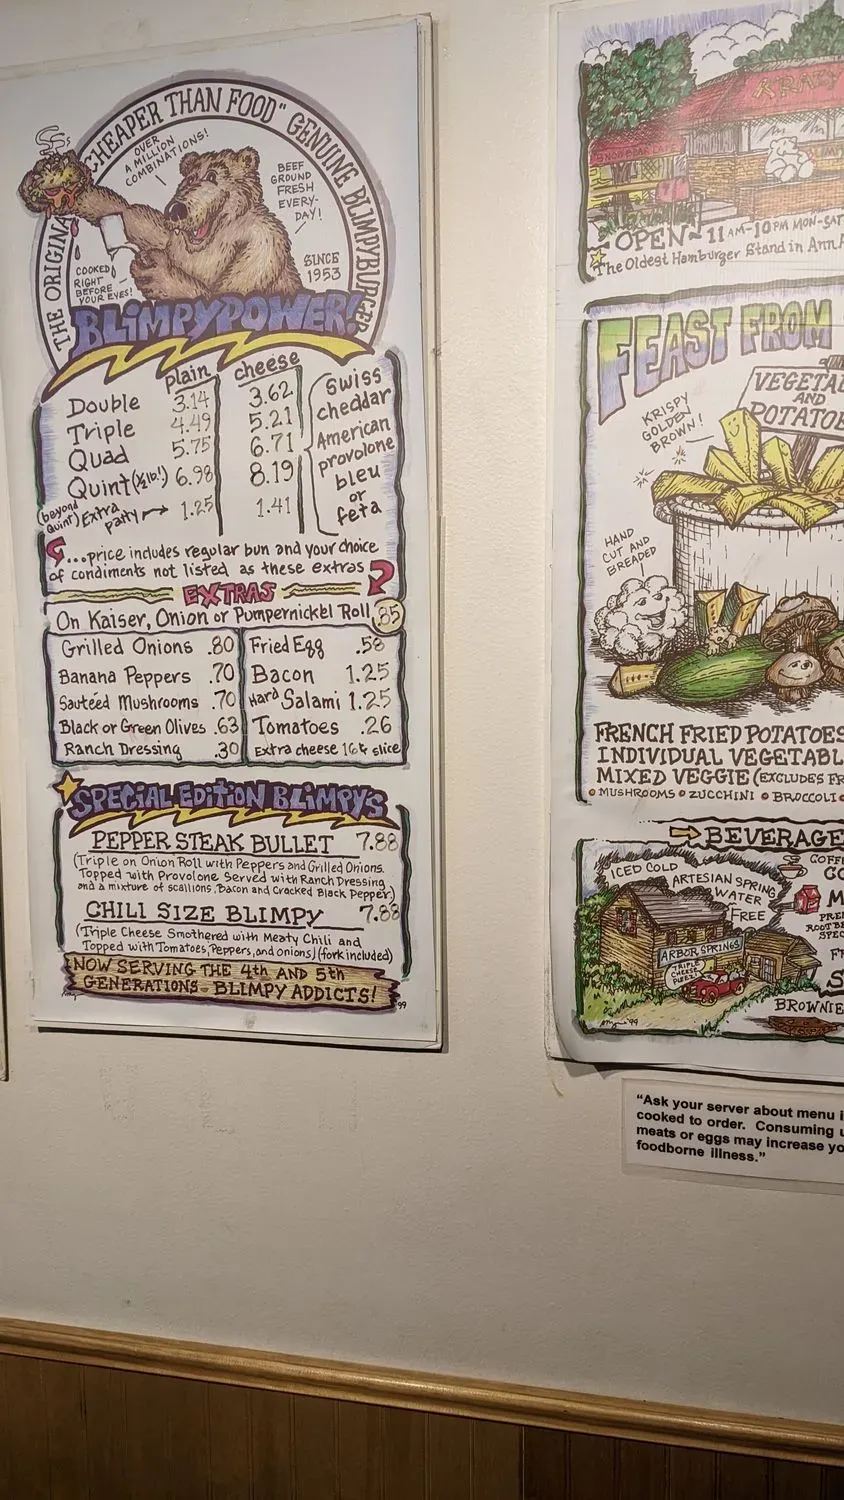 THE ORIGINAL "CHEAPER THAN FOOD" GENUINE BLIMPYBURGER
OVER
A MILLION
COMBINATIONS!
BEEF
GROUND
FRESH
EVERY-
DAY!
COOKED
RIGHT
BEFORE
YOUR EYES!
SINCE
1953
BLIMPYPOWER!
plain cheese
Double 3.14 3.62
Triple 4.49 5.21
Quad 5.75 6.71
Quint (½ lb!) 6.98 8.19
(beyond Quint) Extra patty 1.25 1.41
Swiss
cheddar
American
provolone
bleu
or
feta
...price includes regular bun and your choice
of condiments not listed as these extras
EXTRAS
On Kaiser, Onion or Pumpernickel Roll .85
Grilled Onions .80 Fried Egg .58
Banana Peppers .70 Bacon 1.25
Sautéed Mushrooms .70 Hard Salami 1.25
Black or Green Olives .63 Tomatoes .26
Ranch Dressing .30 Extra cheese 16¢ slice
SPECIAL EDITION BLIMPY'S
PEPPER STEAK BULLET 7.88
(Triple on Onion Roll with Peppers and Grilled Onions.
Topped with Provolone Served with Ranch Dressing
and a mixture of scallions, Bacon and Cracked Black Pepper.)
CHILI SIZE BLIMPY 7.88
(Triple Cheese Smothered with Meaty Chili and
Topped with Tomatoes, Peppers, and Onions) (fork included)
NOW SERVING THE 4th AND 5th
GENERATIONS - BLIMPY ADDICTS!
99
KRAZY
OPEN ~ 11 AM-10PM MON-SAT
The Oldest Hamburger Stand in Ann
FEAST FROM
VEGETA
AND
POTATO
KRISPY
GOLDEN
BROWN!
HAND
CUT AND
BREADED
FRENCH FRIED POTATOES
INDIVIDUAL VEGETABL
MIXED VEGGIE (EXCLUDES FR
MUSHROOMS ZUCCHINI BROCCOLI
BEVERAGE
ICED COLD
ARTESIAN SPRING
WATER
FREE
ARBOR SPRINGS
TRIPLE
CHEESE
PLEEZ!
COFF
CO
M
PRE
ROOT BE
SPEC
FR
S
BROWNIE
'99
"Ask your server about menu i
cooked to order. Consuming u
meats or eggs may increase yo
foodborne illness."